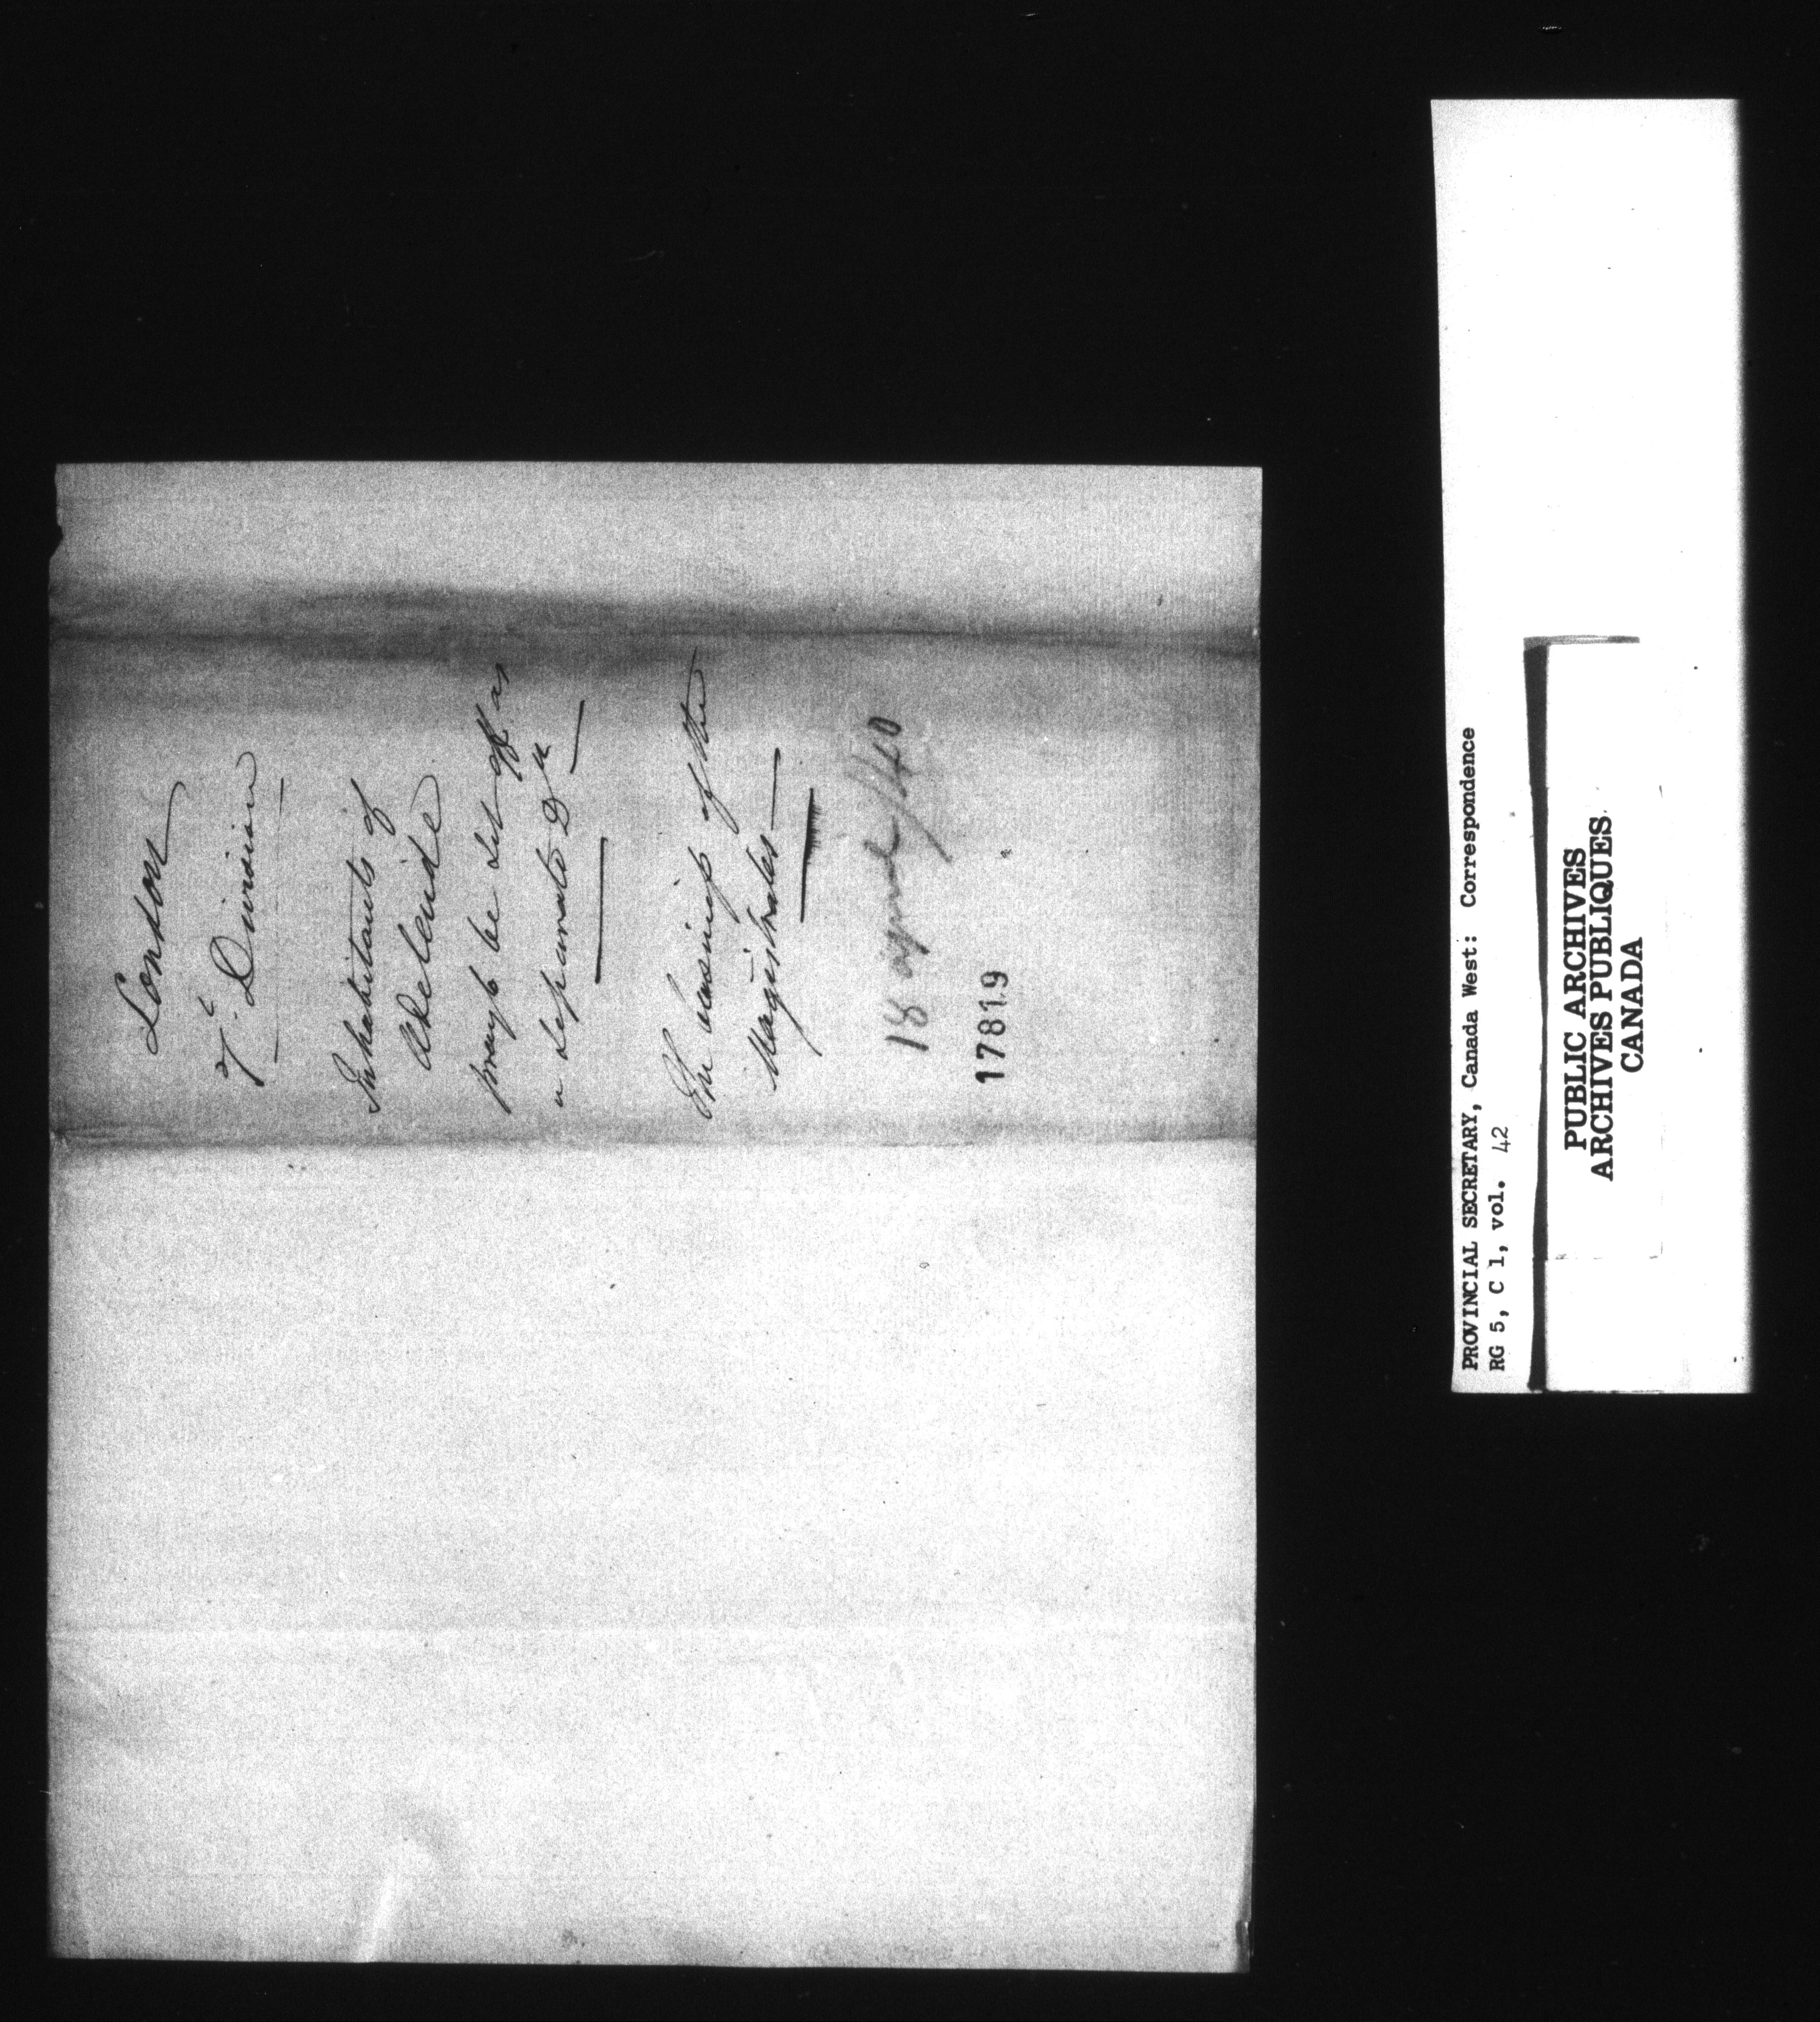 London
7.t Division
Inhabitants of
Adelaide
pray to be set off as
a separate Dn
The answer of the
Magistrates
18 april /40
17819
PROVINCIAL SECRETARY, Canada West: Correspondence
RG 5, C 1, vol. 42
PUBLIC ARCHIVES
ARCHIVES PUBLIQUES
CANADA